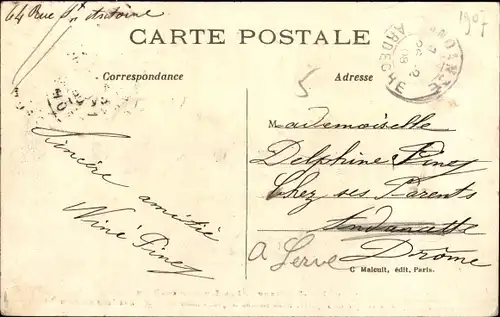 64 Rue St Antoine
1907
CARTE POSTALE
Correspondance
Adresse
5
ARDECHE
Mademoiselle
Delphine Piney
Chez ses Parents
Andancette
Drôme
à Serve
Sincère amitié
Piney
C Malcuit, édit, Paris.